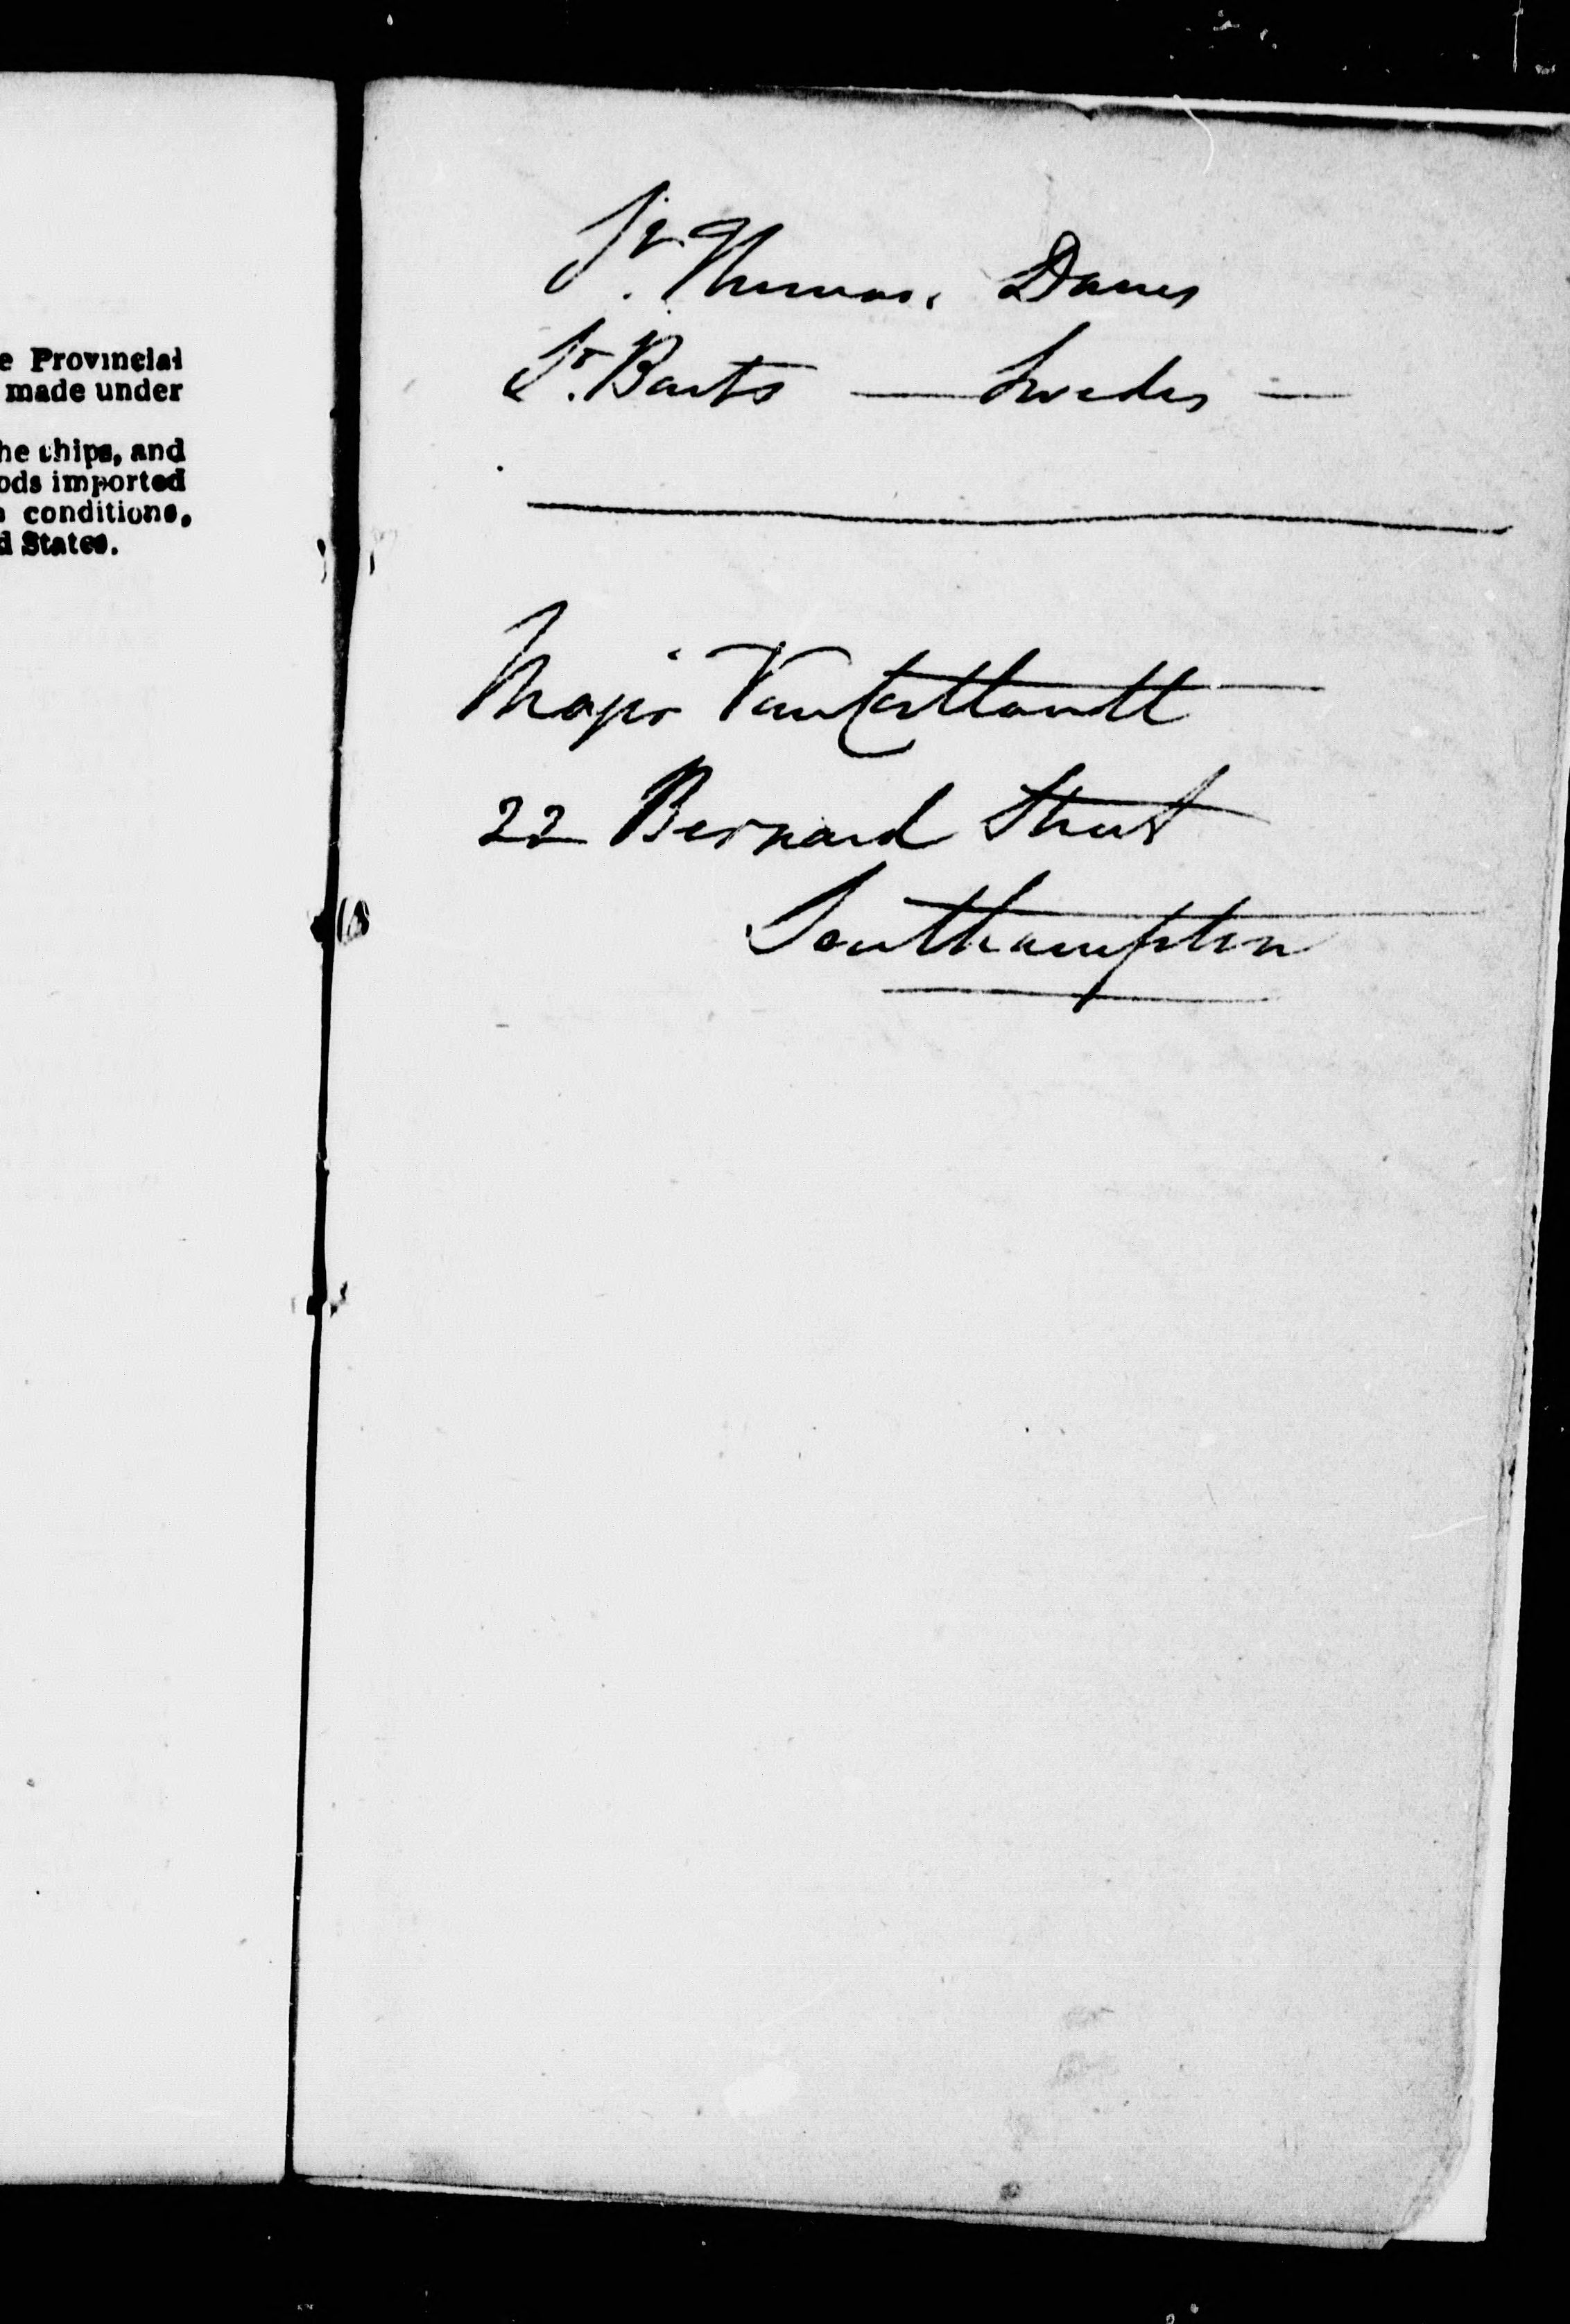 e Provincial
made under
he ships, and
ods imported
conditions,
d States.
St. Thomas. Danes
St. Barts — Swedes —
Major VanCortlandt
22 Bernard Street
Southampton